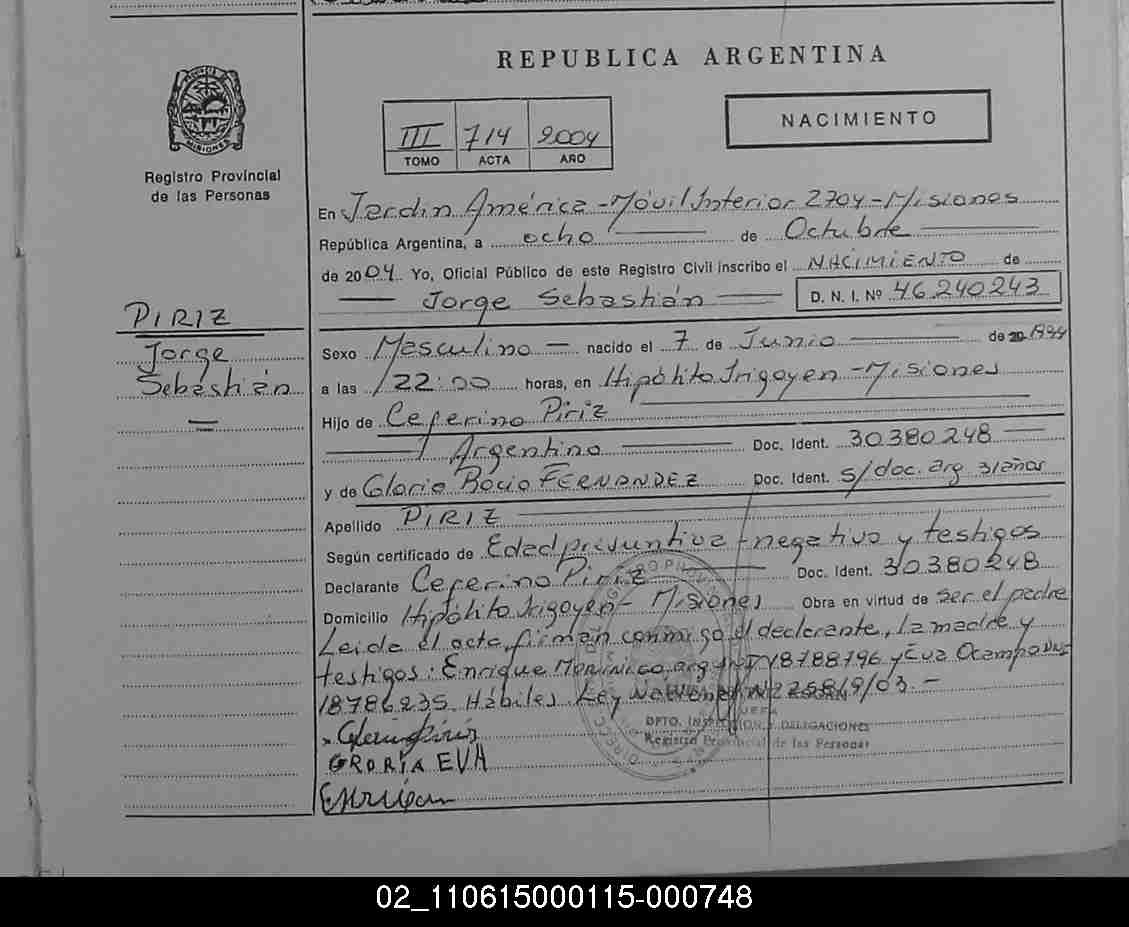 REPUBLICA ARGENTINA
NACIMIENTO
III 714 2.004
TOMO ACTA AÑO
MISIONES
Registro Provincial
de las Personas
PIRIZ
Jorge
Sebastián
En Jardin América - Móvil Interior 2704 - Misiones
República Argentina, a ocho de Octubre
de 2004 Yo, Oficial Público de este Registro Civil inscribo el NACIMIENTO de
Jorge Sebastián D. N. I. Nº 46 240 243
Sexo Masculino nacido el 7 de Junio de 20 1999
a las 22:00 horas, en Hipólito Irigoyen - Misiones
Hijo de Ceferino Piriz
Argentino Doc. Ident. 30380248
y de Gloria Rocio FERNANDEZ Doc. Ident. s/doc. arg 31años
Apellido PIRIZ
Según certificado de Edad presuntiva - negativa y testigos
Declarante Ceferino Piriz Doc. Ident. 30380248
Domicilio Hipólito Irigoyen - Misiones Obra en virtud de ser el padre
Leida el acta, firman conmigo el declarante, la madre y
testigos: Enrique arg 18788796 y Eva Ocampo DNI
18786235. Hábiles. Ley Nacional Nº 25819/03.-
DPTO. INSPECCION Y DELEGACIONES
Registro Provincial de las Personas
GRORIA EVA
02_110615000115-000748